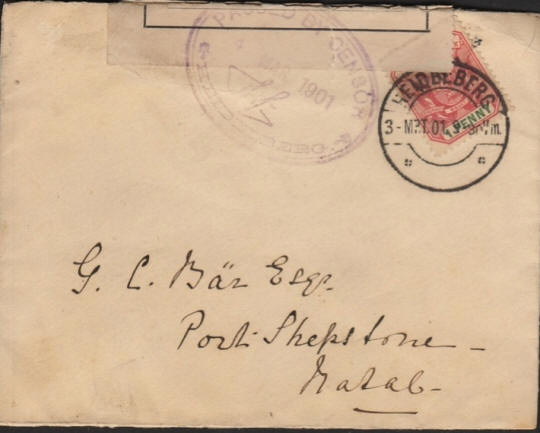 PASSED BY CENSOR
1901
HEIDELBERG
3-MRT.01
PENNY
G. C. Bär Esqr.
Port Shepstone -
Natal-